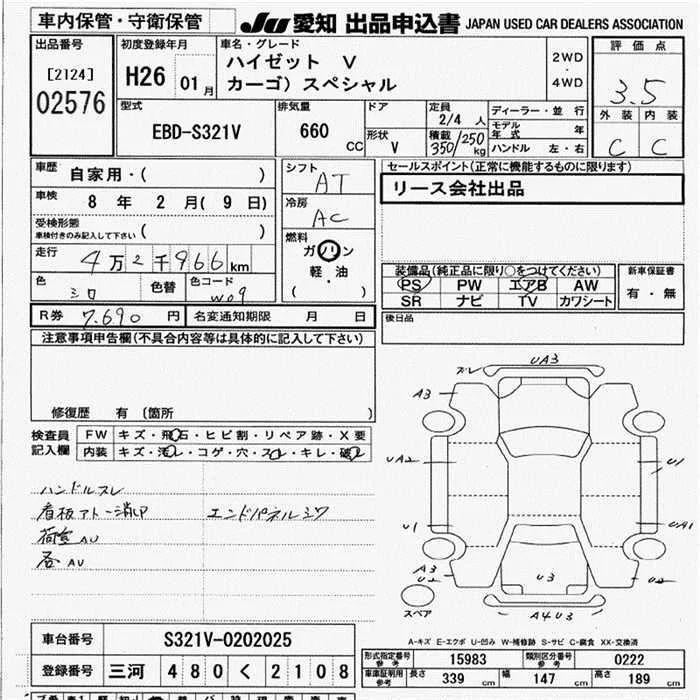 車内保管・守衛保管
JU 愛知 出品申込書 JAPAN USED CAR DEALERS ASSOCIATION
出品番号
[2124]
02576
初度登録年月
H26 01月
車名・グレード
ハイゼット V
カーゴ) スペシャル
2WD
・
4WD
評価点
3.5
外装 内装
C C
型式
EBD-S321V
排気量
660 CC
ドア
形状
V
定員
2/4 人
積載
350/250 kg
ディーラー・並 行
モデル年式 年
ハンドル 左・右
車歴
自家用・( )
車検
8 年 2 月( 9 日)
受検形態
車検付きのみ記入して下さい ( )
走行
4万2千966km
色
シロ
色替
色コード
W09
シフト
AT
冷房
AC
燃料
ガソリン
軽・油
( )
セールスポイント(正常に機能するものに限ります)
リース会社出品
装備品(純正品に限り○をつけてください)
PS PW エアB AW
SR ナビ TV カワシート
新車保証書
有・無
R券 7.690 円 名変通知期限 月 日
後日品
注意事項申告欄(不具合内容等は具体的に記入して下さい)
修復歴 有 (箇所 )
検査員記入欄
FW キズ・飛石・ヒビ割・リペア跡・X要
内装 キズ・汚レ・コゲ・穴・スレ・キレ・破レ
ハンドルスレ
看板アト一消シ エンドパネルシワ
荷室AU
各AU
ズレ UA3
A3
UA2
U1
U1
UA1
A3
U2
U3
U2
A4U3
スペア
A-キズ E-エクボ U-凹み W-補修跡 S-サビ C-腐食 XX-交換済
車台番号 S321V-0202025
登録番号 三河 480 く 2108
型式指定番号 参考 15983 類別区分番号 参考 0222
車庫証明用 参考 長さ 339 cm 幅 147 cm 高さ 189 cm